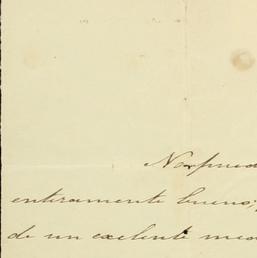 No pued
enteramente bueno,
de un exelente me